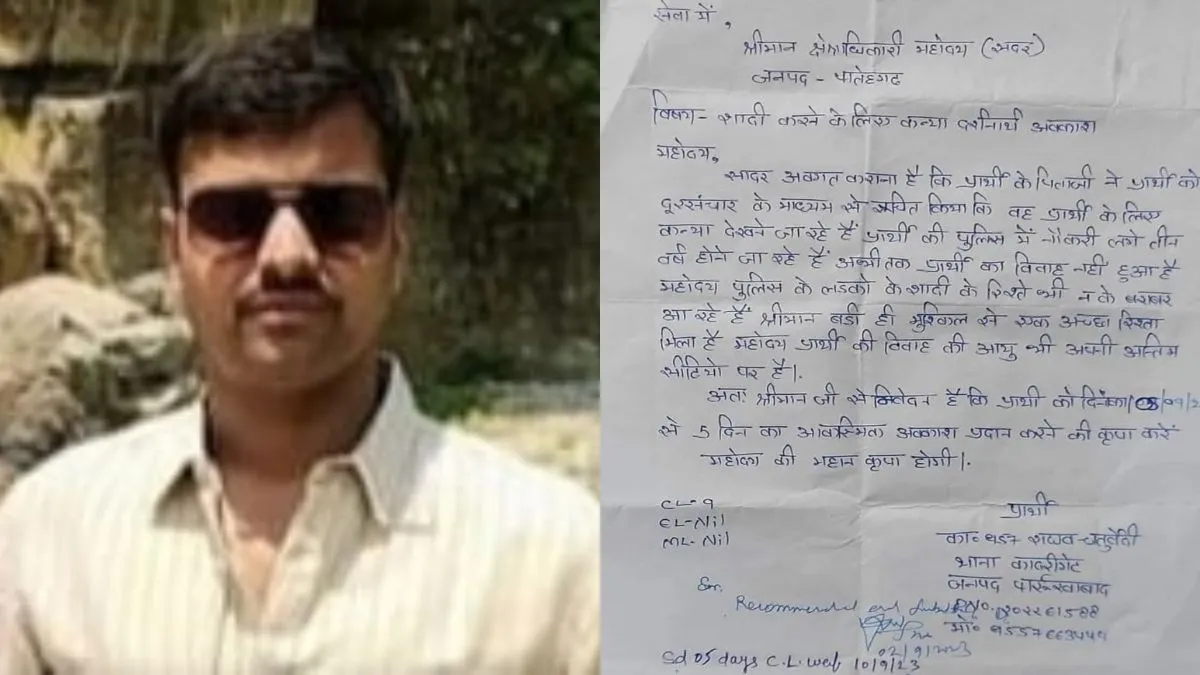 सेवा में,
श्रीमान क्षेत्राधिकारी महोदय (सदर)
जनपद - फतेहगढ
विषय- शादी करने के लिए कन्या दर्शनार्थ अवकाश
महोदय,
सादर अवगत कराना है कि प्रार्थी के पिताजी ने प्रार्थी को
दूरसंचार के माध्यम से सूचित किया कि वह प्रार्थी के लिए
कन्या देखने जा रहे हैं प्रार्थी की पुलिस में नौकरी लगे तीन
वर्ष होने जा रहे हैं अभी तक प्रार्थी का विवाह नहीं हुआ है
महोदय पुलिस के लडको के शादी के रिश्ते भी न के बराबर
आ रहे हैं श्रीमान बडी ही मुश्किल से एक अच्छा रिश्ता
मिला है महोदय प्रार्थी की विवाह की आयु भी अपनी अन्तिम
सीढियो पर है।
अतः श्रीमान जी से निवेदन है कि प्रार्थी को दिनांक
से 5 दिन का आकस्मिक अवकाश प्रदान करने की कृपा करें
महोदय की महान कृपा होगी।
CL-9
EL-Nil
ML-Nil
प्रार्थी
का० 957 राघव चतुर्वेदी
थाना कादरीगेट
जनपद फर्रूखाबाद
Sir,
Recommended and
मो०
02/9/2023
Sd 05 days C.L. wef 10/9/23